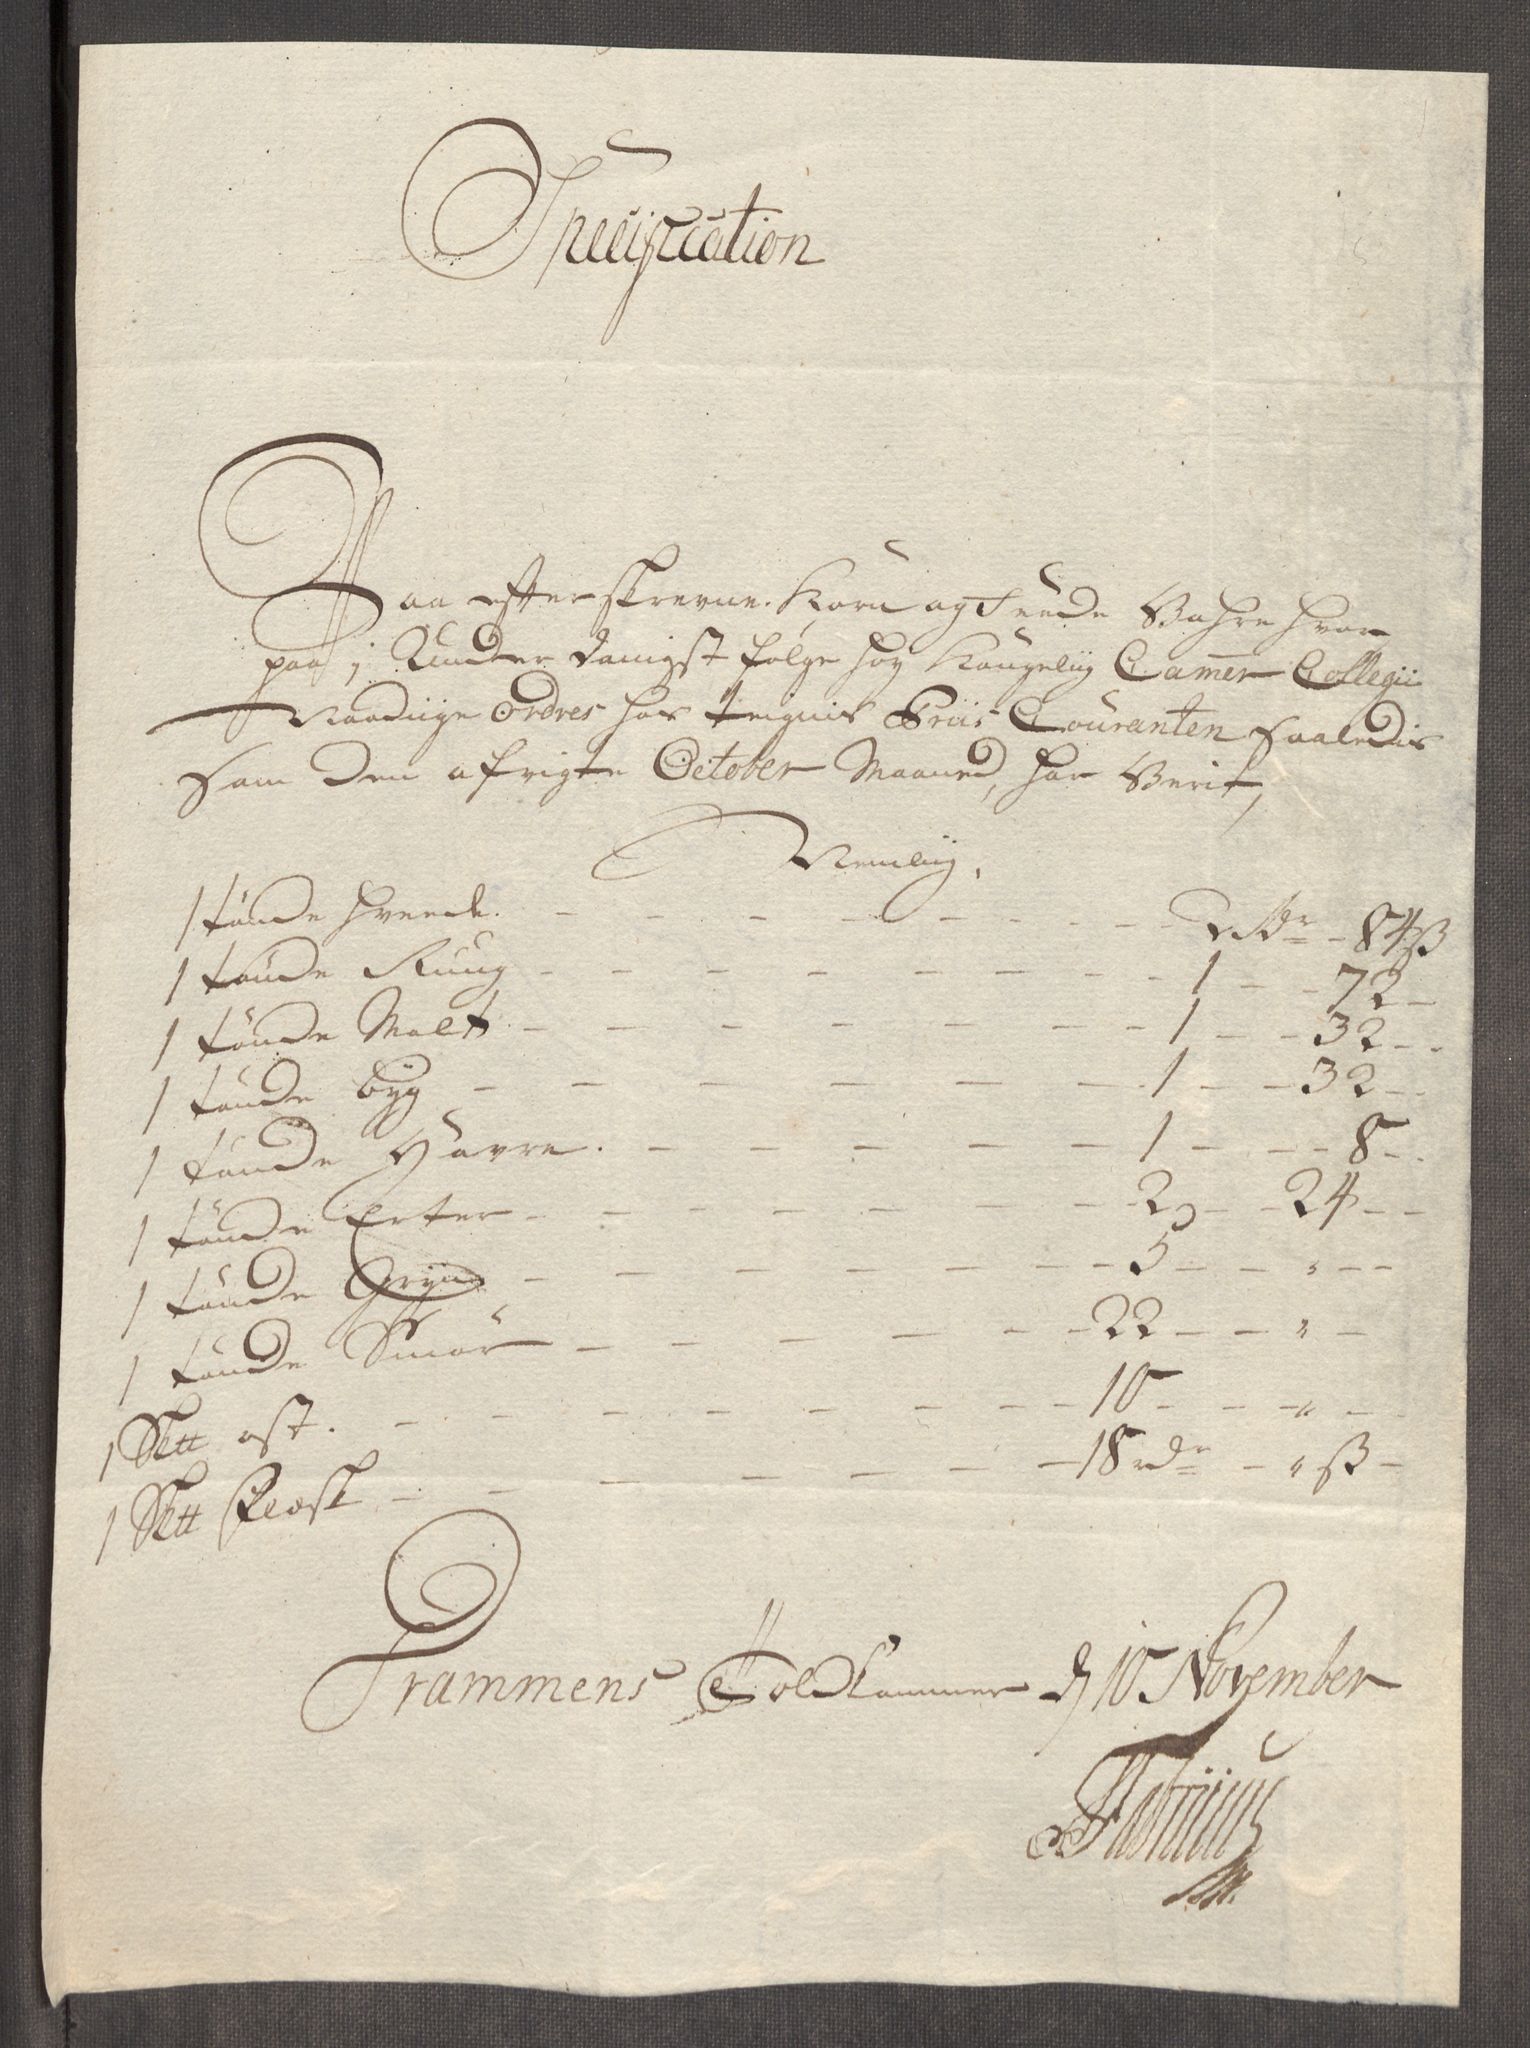 Specification
Paa efter skrevne Korn og Feede Vahre hvor
paa j Under danigst følge høy Kongeliig Camer Collegii
Naadiige Ordres hos teignis Priis Couranten saaledis
som den afvigte October Maaned, har Verit,
Nemliig,
1 tønde hveede. - - - - - - - - 2 Rdr - 84 ß
1 tønde Rüug - - - - - - - - 1 - - 72 -
1 tønde Malt - - - - - - - - 1 - - 32 - -
1 tønde byg - - - - - - - 1 - - 32 - -
1 tønde Havre. - - - - - 1 - - - 8 - -
1 tønde Erter - - - - - - - 2 - - 24 - -
1 tønde Gryn - - - - - - - 5 - - - " - -
1 tønde Smør - - - - - - 22 - - " -
1 Sktt ost. - - - - - - - - 10 - - " - -
1 Sktt Flæsk - - - - - - - 18 rdr - " ß -
Drammens Toldkammer d 10 November